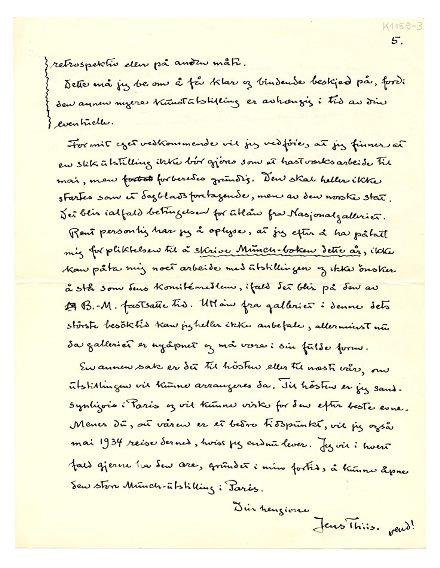 K1193-3
5.
retrospektiv eller på anden måte.
Dette må jeg be om å få klar og bindende beskjed på, fordi
den annen nyere kunstutstilling er avhengig i tid av din
eventuelle.
For mit eget vedkommende vil jeg vedføie, at jeg finner at
en slik utstilling ikke bör gjöres som et hastverksarbeide til
mai, men forberedes grundig. Den skal heller ikke
startes som et dagbladsforetagende, men av den norske stat.
Det blir ialfald betingelsen for utlån fra Nasjonalgalleriet.
Rent personlig har jeg å oplyse, at jeg efter å ha påtatt
mig forpliktelsen til å skrive Munch-boken dette år, ikke
kan påta mig noet arbeide med utstillingen og ikke önsker
å stå som dens komitémedlem, ifald det blir på den av
B.-M. fastsatte tid. Utlån fra galleriet i denne dets
störste besöktid kan jeg heller ikke anbefale, allerminst nu
da galleriet er nyåpnet og må være i sin fulde form.
En annen sak er det til hösten eller til næste vår, om
utstillingen vil kunne arrangeres da. Til hösten er jeg sand-
synligvis i Paris og vil kunne virke for den efter beste evne.
Mener du, at våren er et bedre tidspunkt, vil jeg også
mai 1934 reise derned, hvis jeg endnu lever. Jeg vil i hvert
fald gjerne ha den ære, grundet i min fortid, å kunne åpne
den stor Munch-utstilling i Paris.
Din hengivne
Jens Thiis.
vend!